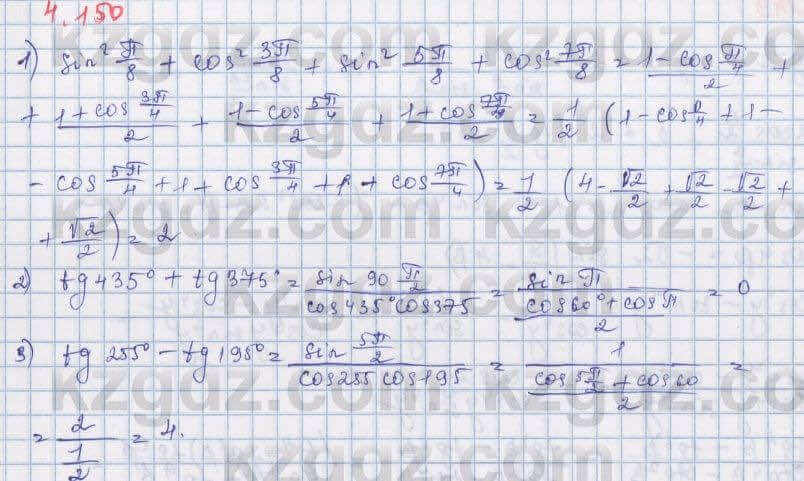 4.150
1) sin² π/8 + cos² 3π/8 + sin² 5π/8 + cos² 7π/8 = (1 - cos π/4)/2 +
+ (1 + cos 3π/4)/2 + (1 - cos 5π/4)/2 + (1 + cos 7π/4)/2 = 1/2 (1 - cos π/4 + 1 -
- cos 5π/4 + 1 + cos 3π/4 + 1 + cos 7π/4) = 1/2 (4 - √2/2 + √2/2 - √2/2 +
+ √2/2) = 2
2) tg 435° + tg 375° = (sin 90 π/2)/(cos 435° cos 375) = (sin π)/((cos 60° + cos π)/2) = 0
3) tg 255° - tg 195° = (sin 5π/2)/(cos 255 cos 195) = 1/((cos 5π/2 + cos 60)/2) =
= 2/(1/2) = 4.
kzgdz.com